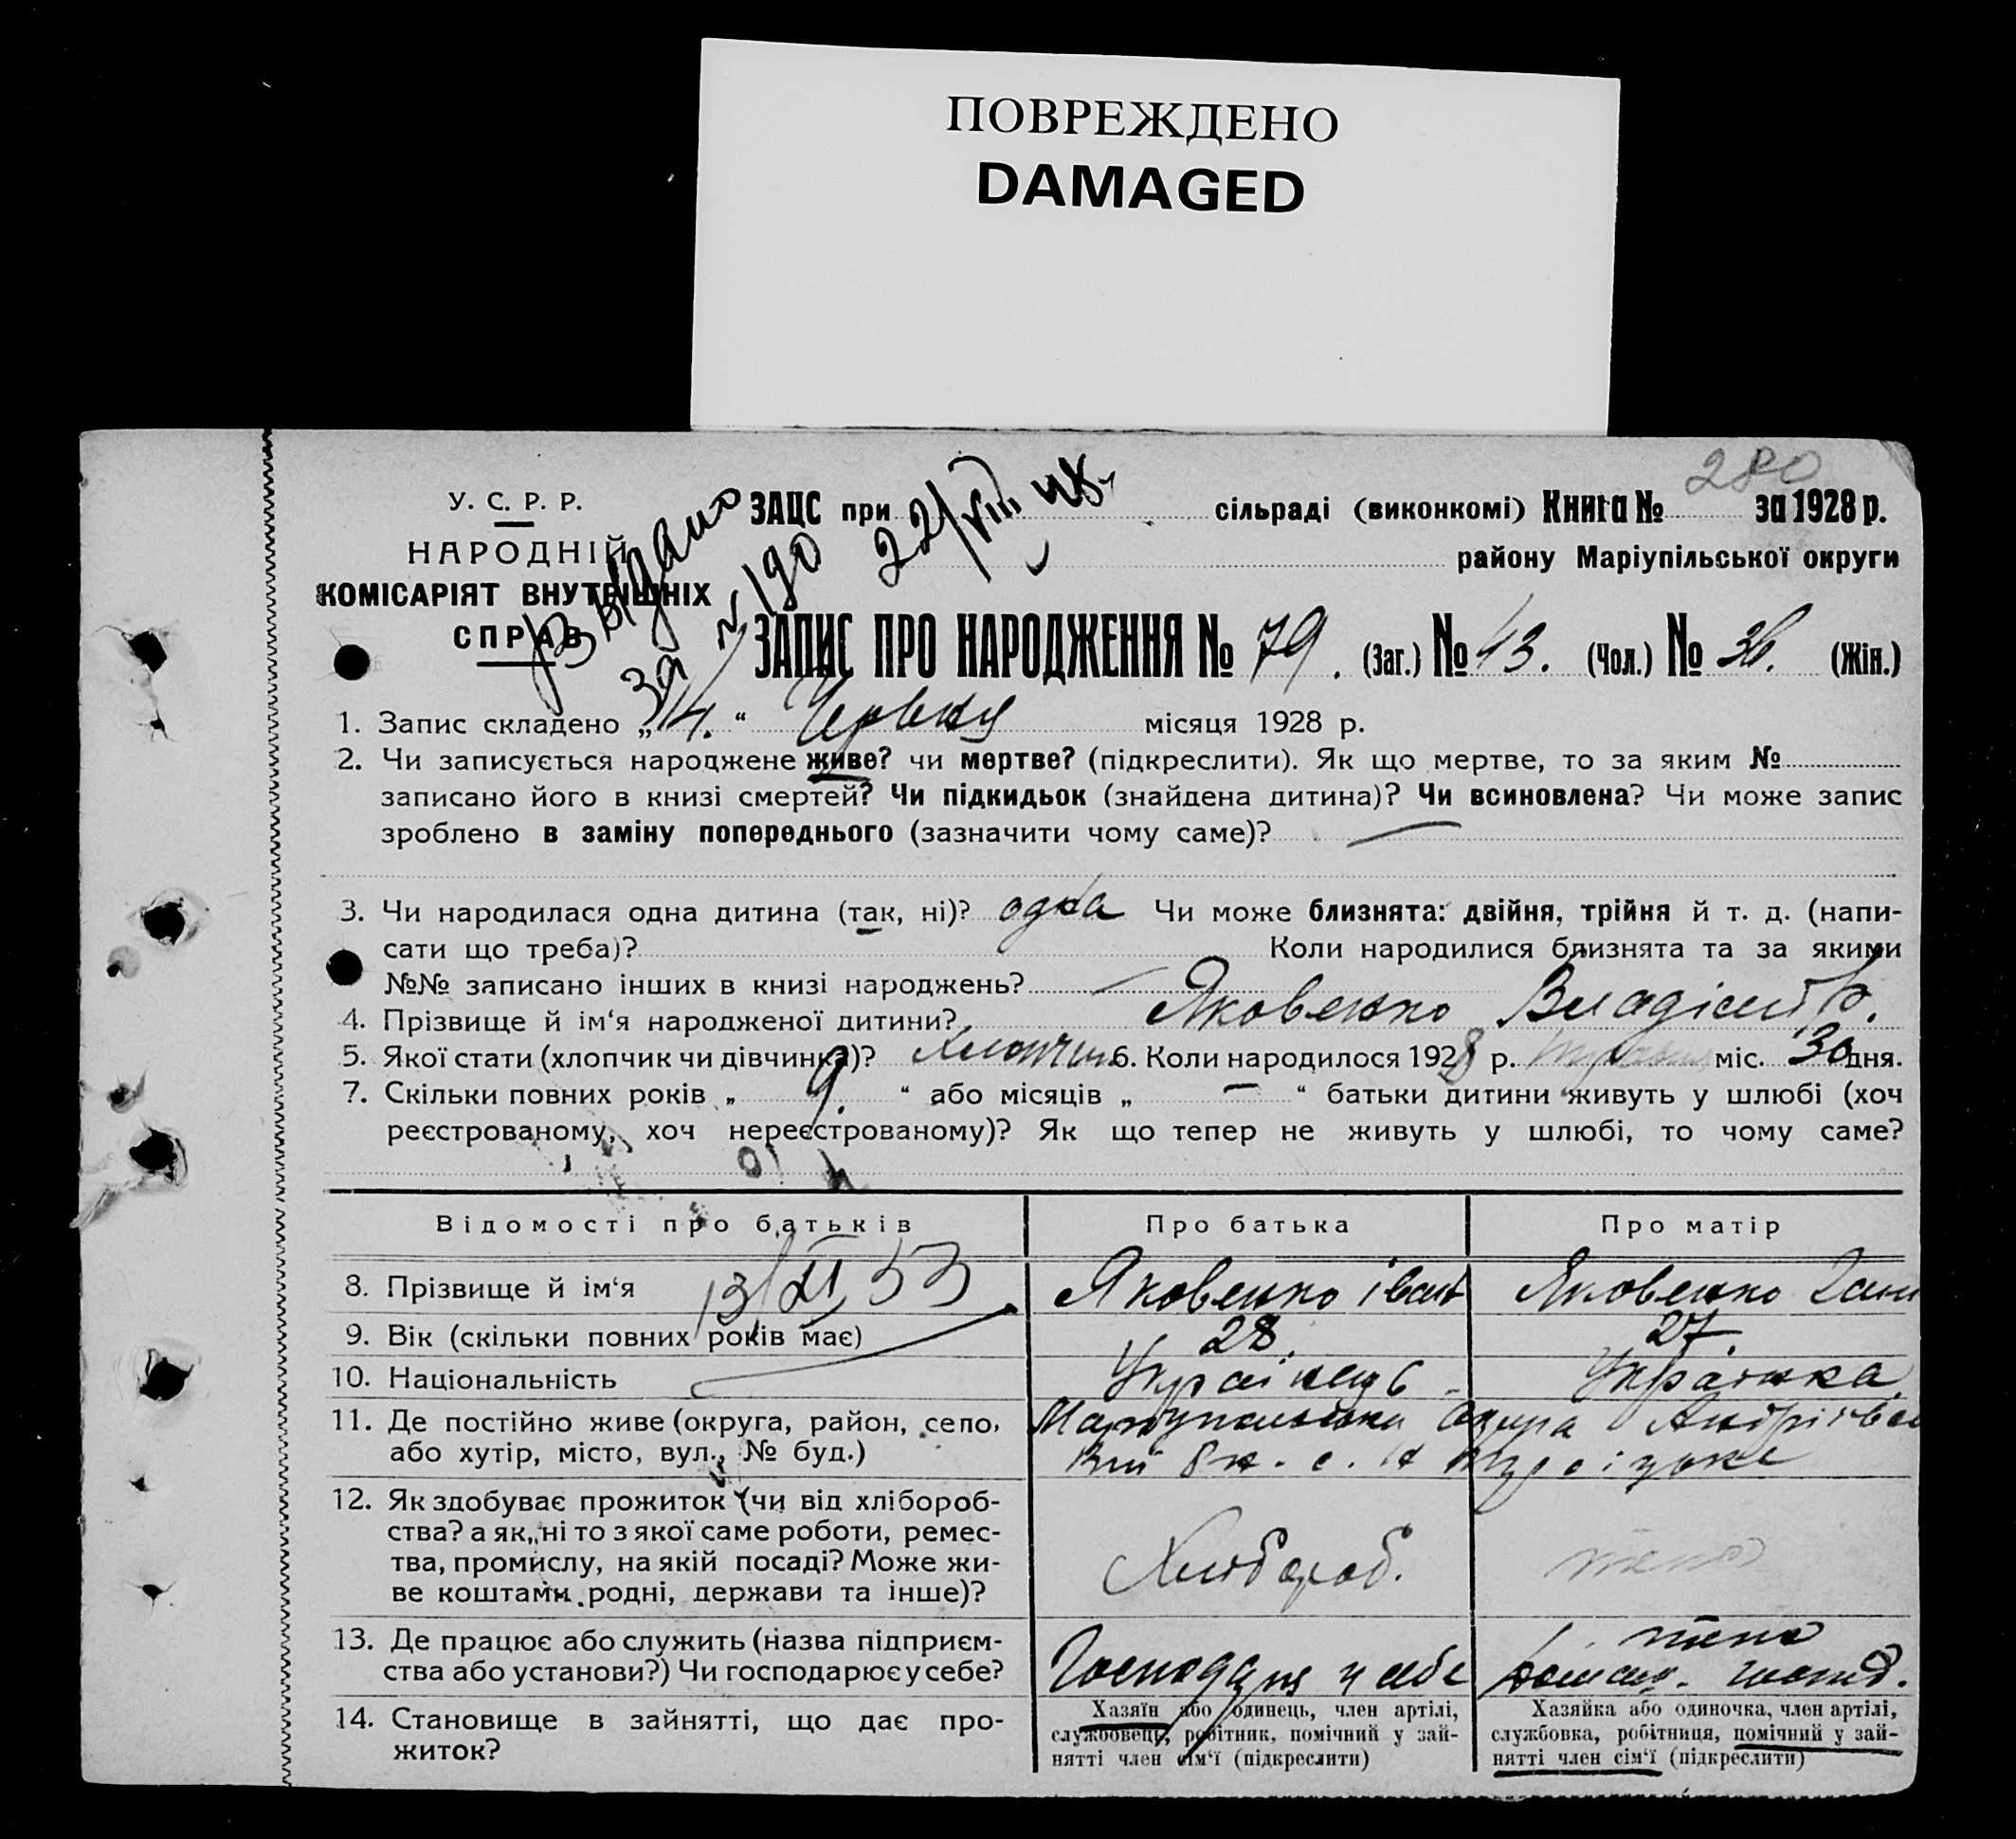 ПОВРЕЖДЕНО
DAMAGED
280
У. С. Р. Р.
НАРОДНІЙ
КОМІСАРІЯТ ВНУТРІШНІХ
СПРАВ
Выдано
за № 190
22/VIII 48.
ЗАЦС при сільраді (виконкомі) Книга № за 1928 р.
району Маріупільської округи
ЗАПИС ПРО НАРОДЖЕННЯ № 79. (Заг.) № 43. (Чол.) № 36. (Жін.)
1. Запис складено „14.“ Червня місяця 1928 р.
2. Чи записується народжене живе? чи мертве? (підкреслити). Як що мертве, то за яким №
записано його в книзі смертей? Чи підкидьок (знайдена дитина)? Чи всиновлена? Чи може запис
зроблено в заміну попереднього (зазначити чому саме)? —
3. Чи народилася одна дитина (так, ні)? одна Чи може близнята: двійня, трійня й т. д. (напи-
сати що треба)? Коли народилися близнята та за якими
№№ записано інших в книзі народжень? —
4. Прізвище й ім‘я народженої дитини? Яковенко Владімір.
5. Якої стати (хлопчик чи дівчинка)? Хлопчик 6. Коли народилося 1928 р. травня міс. 30 дня.
7. Скільки повних років „ 9. “ або місяців „ — “ батьки дитини живуть у шлюбі (хоч
реєстрованому, хоч нереєстрованому)? Як що тепер не живуть у шлюбі, то чому саме?
Відомості про батьків Про батька Про матір
13/XI 53
8. Прізвище й ім‘я Яковенко іван Яковенко
9. Вік (скільки повних років має) 28. 27.
10. Національність Українець Українка
11. Де постійно живе (округа, район, село,
або хутір, місто, вул., № буд.)
Маріупільська Округа
12. Як здобуває прожиток (чи від хлібороб-
ства? а як „ні то з якої саме роботи, ремес-
тва, промислу, на якій посаді? Може жи-
ве коштами родні, держави та інше)?
Хлібороб.
13. Де працює або служить (назва підприєм-
ства або установи?) Чи господарює у себе?
Господар у себе
14. Становище в зайнятті, що дає про-
житок?
Хазяїн або одинець, член артілі,
службовець, робітник, помічний у зай-
нятті член сім‘ї (підкреслити)
Хазяйка або одиночка, член артілі,
службовка, робітниця, помічний у зай-
нятті член сім‘ї (підкреслити)